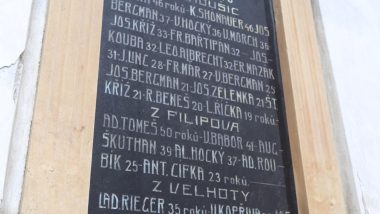 46 roků · K.SHONAUER 46 JOS
BERGMAN 37-V.HOCKÝ 36 V.MORCH 36
JOS.KŘÍŽ 33-FR.BARTIPAN 32 - JOS.
KOUBA 32-LEO.ALBRECHT 32-ER.MAZAK
31-J.UNC 28-FR.MAR 27-V.BERGMAN 25
JOS.BERGMAN 21-JOS.ZELENKA 21 ŠT.
KŘÍŽ 21-R.BENEŠ 20-L.ŘÍČKA 19 roků-
Z FILIPOVA
AD.TOMEŠ 60 roků-V.BABOR 41-AUG-
ŠKUTHAN 39 AL.HOCKÝ 37-AD.ROU
BÍK 25-ANT.CIFKA 23 roků-
Z VELHOTY
LAD.RIEGER 35 roků-V.KOPŘIVA